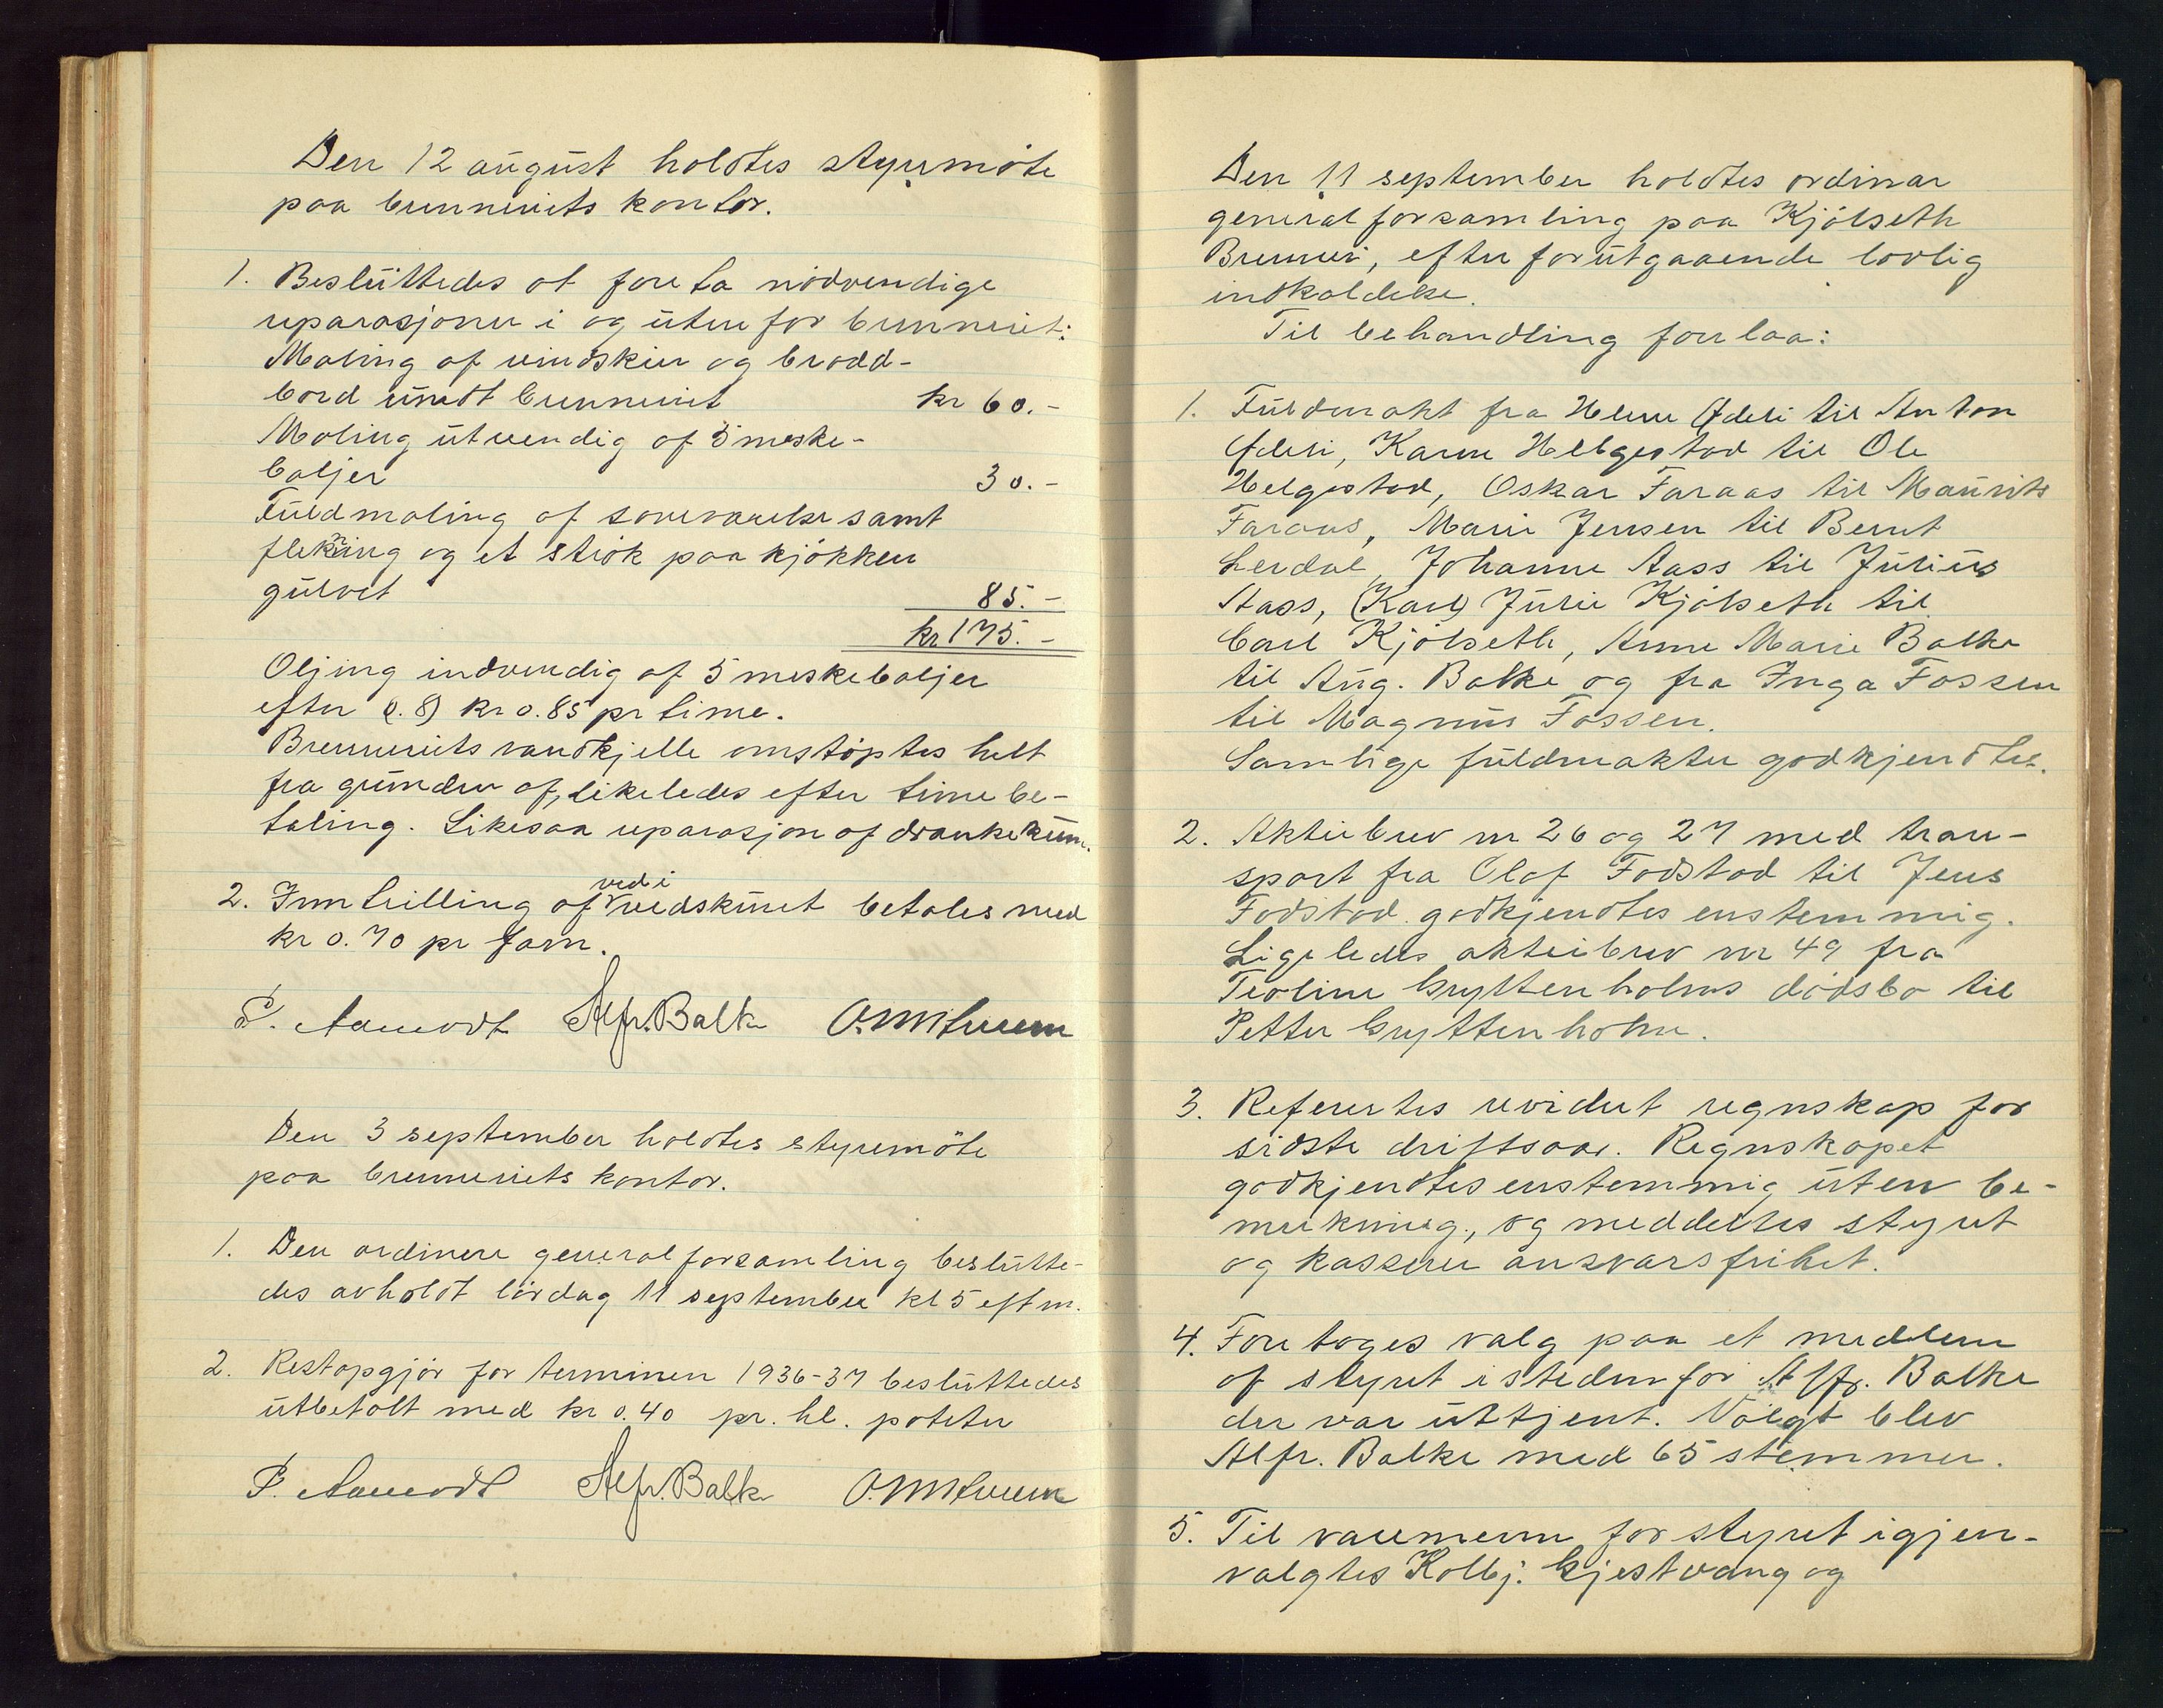 Den 12 august holdtes styrmöte
paa brenneriets kontor.
1. Besluttedes at foreta nödvendige
reparasjoner i og utenfor brenneriet:
Maling af vindskier og brodd-
bord rundt brenneriet kr 60.-
Maling utvendig af 5 meske-
baljer 30.-
Fuldmaling af soveværelse samt
flekning og et strök paa kjökken
gulvet 85.-
kr 175.-
Oljing indvendig af 5 meskebaljer
efter (0.8) kr 0.85 pr time.
Brenneriets vandkjelle omstöptes helt
fra grunden af, likeledes efter timebe-
taling. Likesaa reparasjon af drankekum.
2. Inntrilling af ved i vedskuret betales med
kr 0.70 pr favn.
P. Aamodt Alfr. Balke
Den 3 september holdtes styremöte
paa brenneriets kontor.
1. Den ordinere generalforsamling beslutte-
des avholdt lördag 11 september kl 5 eftm.
2. Restopgjör for terminen 1936-37 besluttedes
utbetalt med kr 0.40 pr. hl. poteter
P. Aamodt Alfr. Balke
Den 11 september holdtes ordinær
generalforsamling paa Kjölseth
Brenneri, efter forutgaaende lovlig
indkaldelse.
Til behandling forelaa:
1. Fuldmakt fra Helene til Anton
Karen Helgestad til Ole
Helgestad, Oskar Faraas til Maurits
Faraas, Marie Jensen til Bernt
Lerdal, Johanne Aass til Julius
Aass, (Karl) Julie Kjölseth til
Carl Kjölseth, Anne Marie Balke
til Aug. Balke og fra Inga Fossen
til Magnus Fossen.
Samtlige fuldmakter godkjendtes.
2. Aktiebrev nr 26 og 27 med tran-
sport fra Olaf Fodstad til Jens
Fodstad godkjendtes enstemmig.
Ligeledes aktiebrev nr 49 fra
Teoline Gryttenholms dödsbo til
Petter Gryttenholm.
3. Refereertes revidert regnskap for
sidste driftsaar. Regnskapet
godkjendtes enstemmig uten be-
merkning, og meddeltes styret
og kasserer ansvarsfrihet.
4. Foretoges valg paa et medlem
af styret istedenfor Alfr. Balke
der var uttjent. Valgt blev
Alfr. Balke med 65 stemmer.
5. Til varemenn for styret igjen-
valgtes Kolbj. Gjestvang og